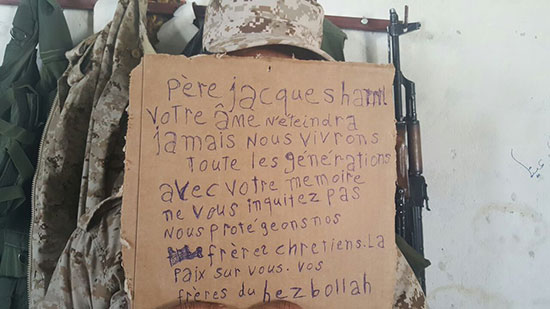 Père jacques haml
votre âme n'éteindra
jamais nous vivrons
toute les générations
avec votre memoire
ne vous inquitez pas
nous protégeons nos
frères chretiens. La
paix sur vous. vos
frères du hezbollah